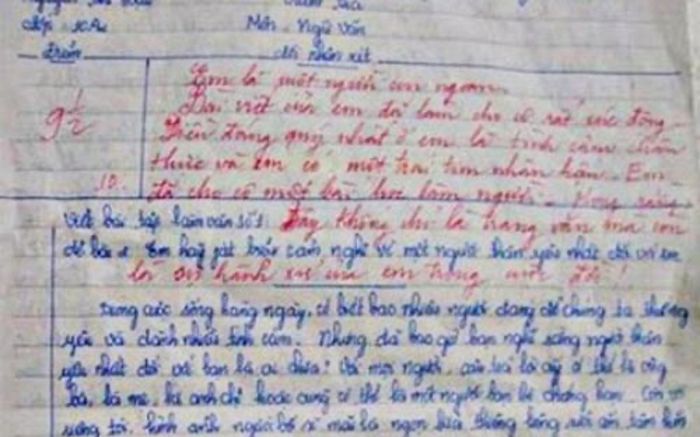 Lớp: 10A
Môn: Ngữ văn
Điểm
Lời nhận xét
Em là một người con ngoan.
9 1/2
Bài viết của em đã làm cho cô rất xúc động
Điều đáng quý nhất ở em là tình cảm chân
thực và em có một trái tim nhân hậu. Em
đã cho cô một bài học làm người. Mong rằng
Viết bài tập làm văn số 1:
đây không chỉ là trang văn mà còn
đề bài: Em hãy phát biểu cảm nghĩ về một người thân yêu nhất đối với em
là sự hành xử của em trong cuộc đời!
Trong cuộc sống hàng ngày, có biết bao nhiêu người đáng để chúng ta thương
yêu và dành nhiều tình cảm. Nhưng đã bao giờ bạn nghĩ rằng người thân
yêu nhất đối với bạn là ai chưa? Với mọi người, câu trả lời ấy có thể là ông
bà, là mẹ, là anh chị hoặc cũng có thể là một người bạn bè chẳng hạn. Còn
riêng tôi, hình ảnh người bố sẽ mãi là ngọn lửa thiêng liêng sưởi ấm tâm hồn